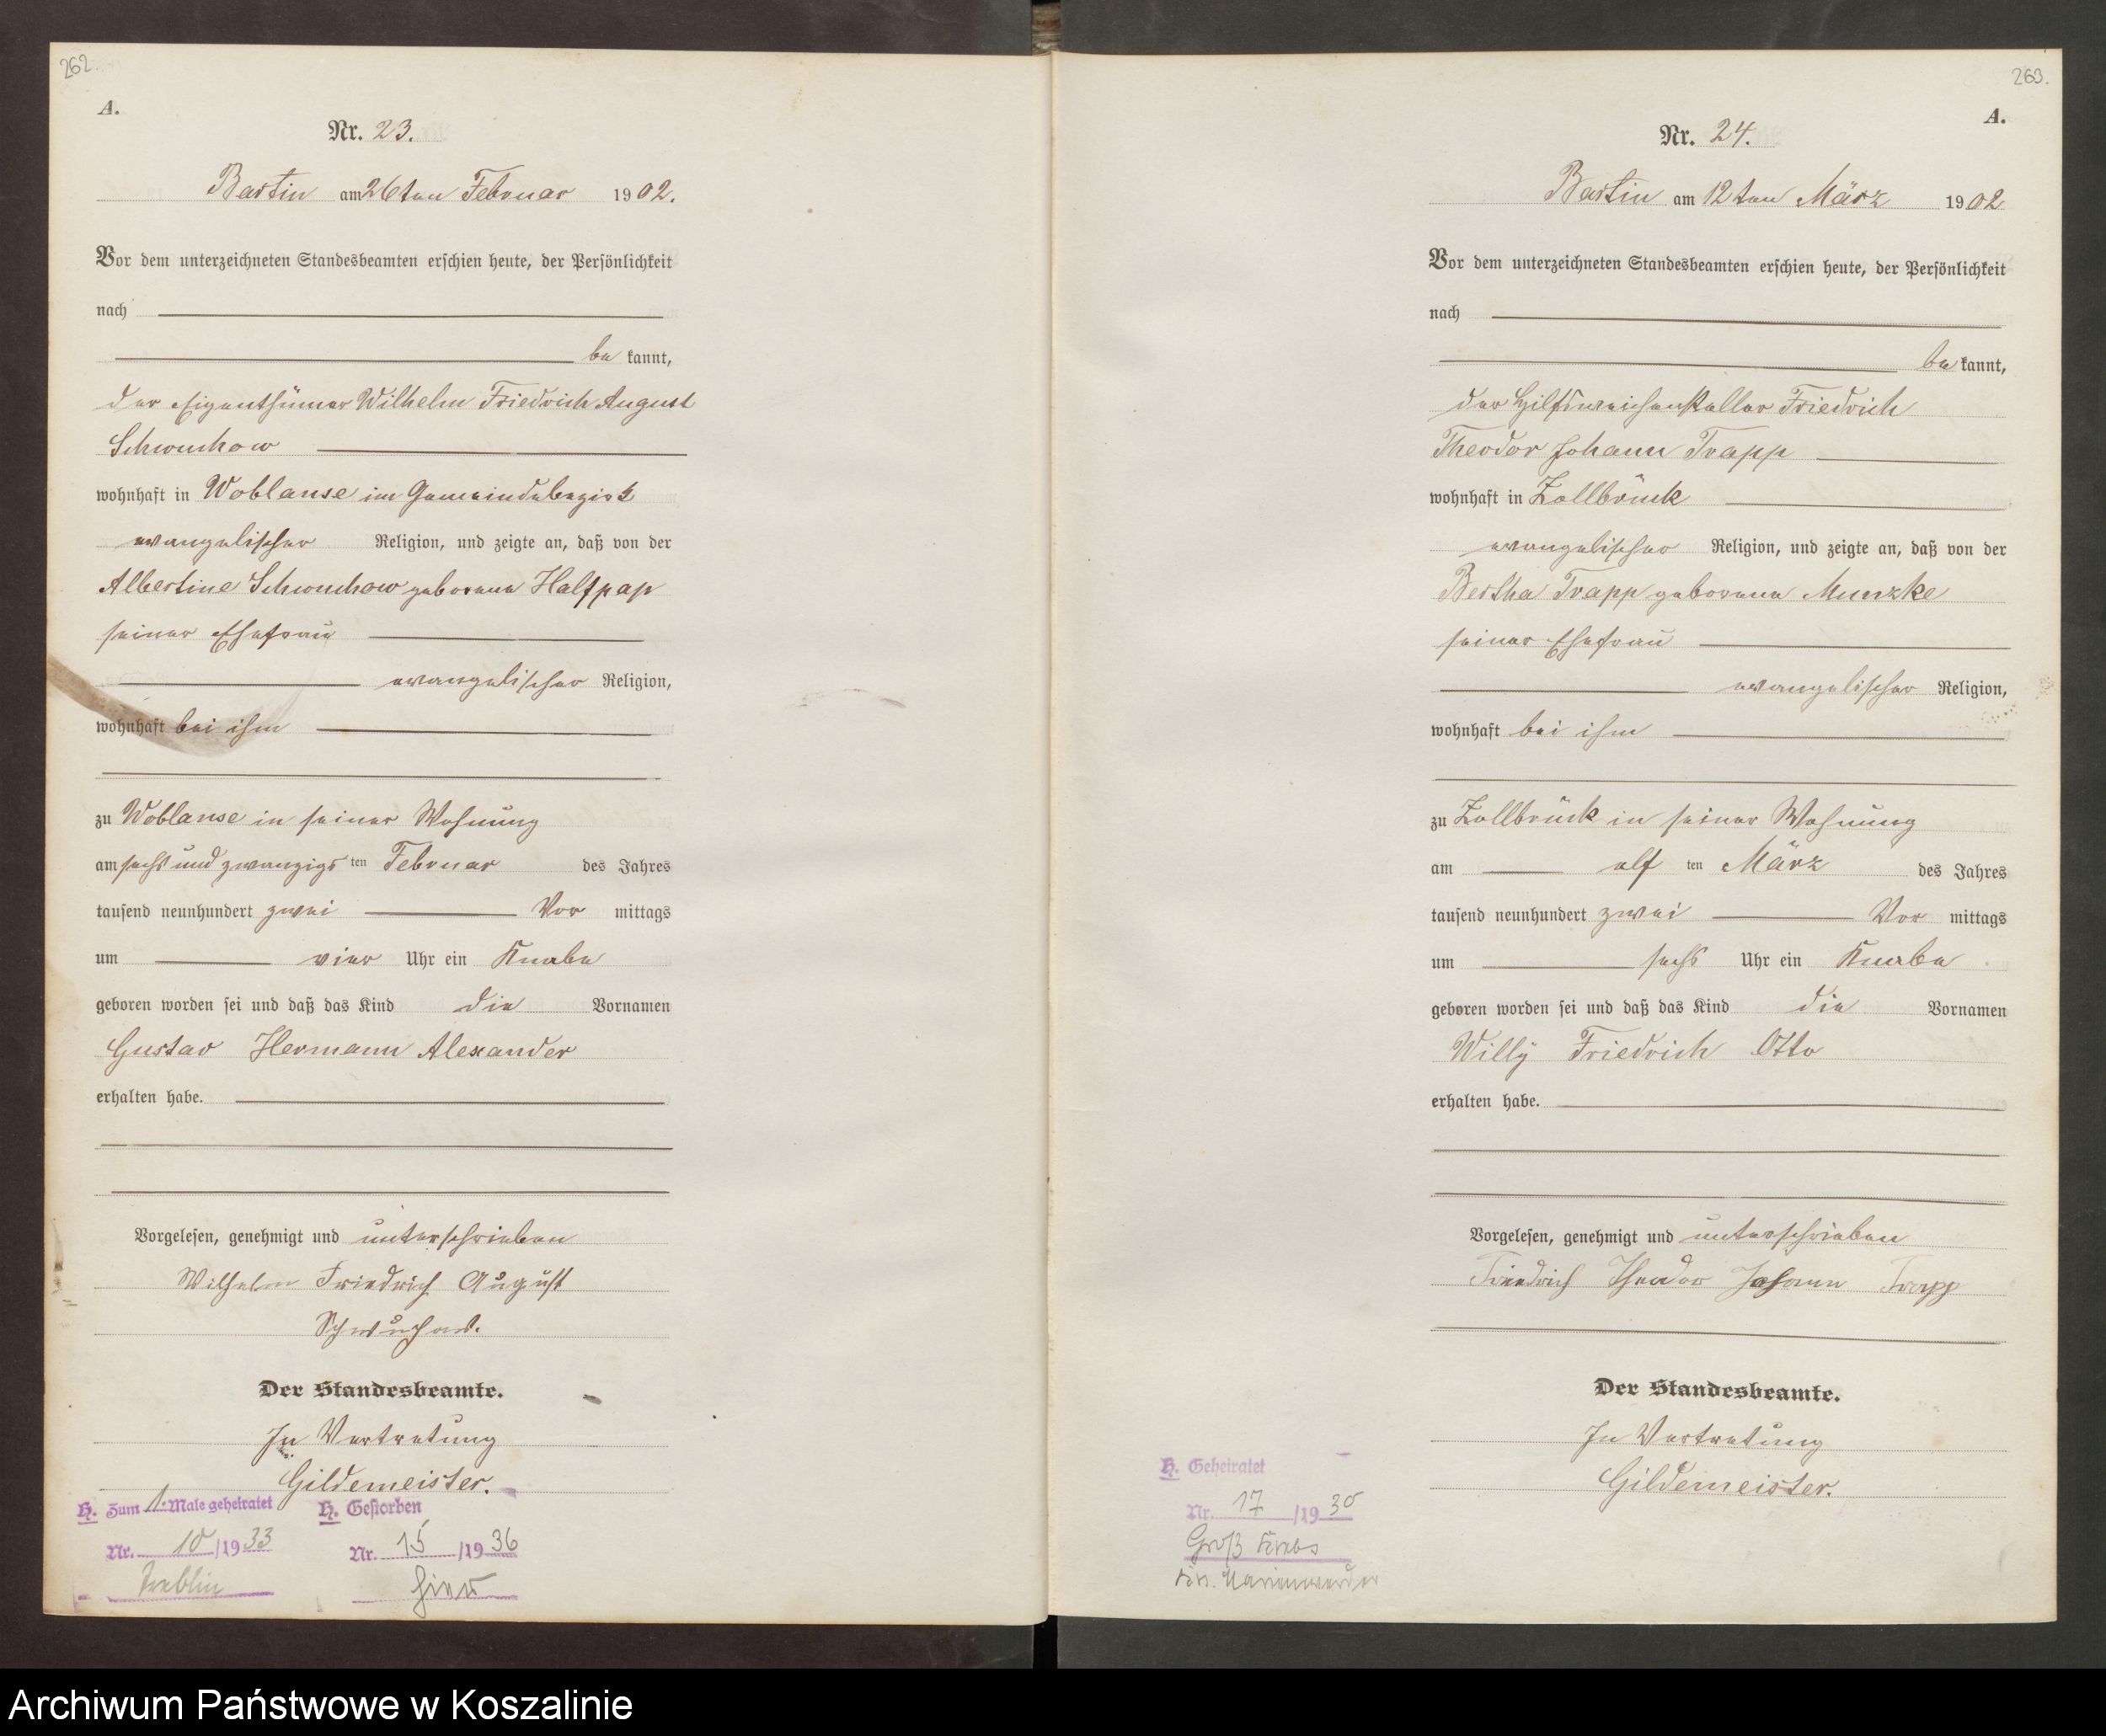 262.
A.
Nr. 23.
Bartin am 26ten Februar 1902.
Vor dem unterzeichneten Standesbeamten erschien heute, der Persönlichkeit
nach
bekannt,
der Eigenthümer Wilhelm Friedrich August
Schwuchow
wohnhaft in Woblanse im Gemeindebezirk
evangelischer Religion, und zeigte an, daß von der
Albertine Schwuchow geborene Halfpap
seiner Ehefrau
evangelischer Religion,
wohnhaft bei ihm
zu Woblanse in seiner Wohnung
am sechs und zwanzigsten Februar des Jahres
tausend neunhundert zwei Vormittags
um vier Uhr ein Knabe
geboren worden sei und daß das Kind die Vornamen
Gustav Hermann Alexander
erhalten habe.
Vorgelesen, genehmigt und unterschrieben
Wilhelm Friedrich August
Schwuchow.
Der Standesbeamte.
In Vertretung
Gildemeister.
H. Zum 1. Male geheiratet
Nr. 10/1933
Treblin
H. Gestorben
Nr. 15/1936
263.
A.
Nr. 24.
Bartin am 12ten März 1902
Vor dem unterzeichneten Standesbeamten erschien heute, der Persönlichkeit
nach
bekannt,
der Hilfsweichensteller Friedrich
Theodor Johann Trapp
wohnhaft in Zollbrück
evangelischer Religion, und zeigte an, daß von der
Bertha Trapp geborene Munzke
seiner Ehefrau
evangelischer Religion,
wohnhaft bei ihm
zu Zollbrück in seiner Wohnung
am elften März des Jahres
tausend neunhundert zwei Vormittags
um sechs Uhr ein Knabe
geboren worden sei und daß das Kind die Vornamen
Willy Friedrich Otto
erhalten habe.
Vorgelesen, genehmigt und unterschrieben
Friedrich Theodor Johann Trapp
Der Standesbeamte.
In Vertretung
Gildemeister.
H. Geheiratet
Nr. 17/1930
Groß Krebs
Kr. Marienwerder
Archiwum Państwowe w Koszalinie